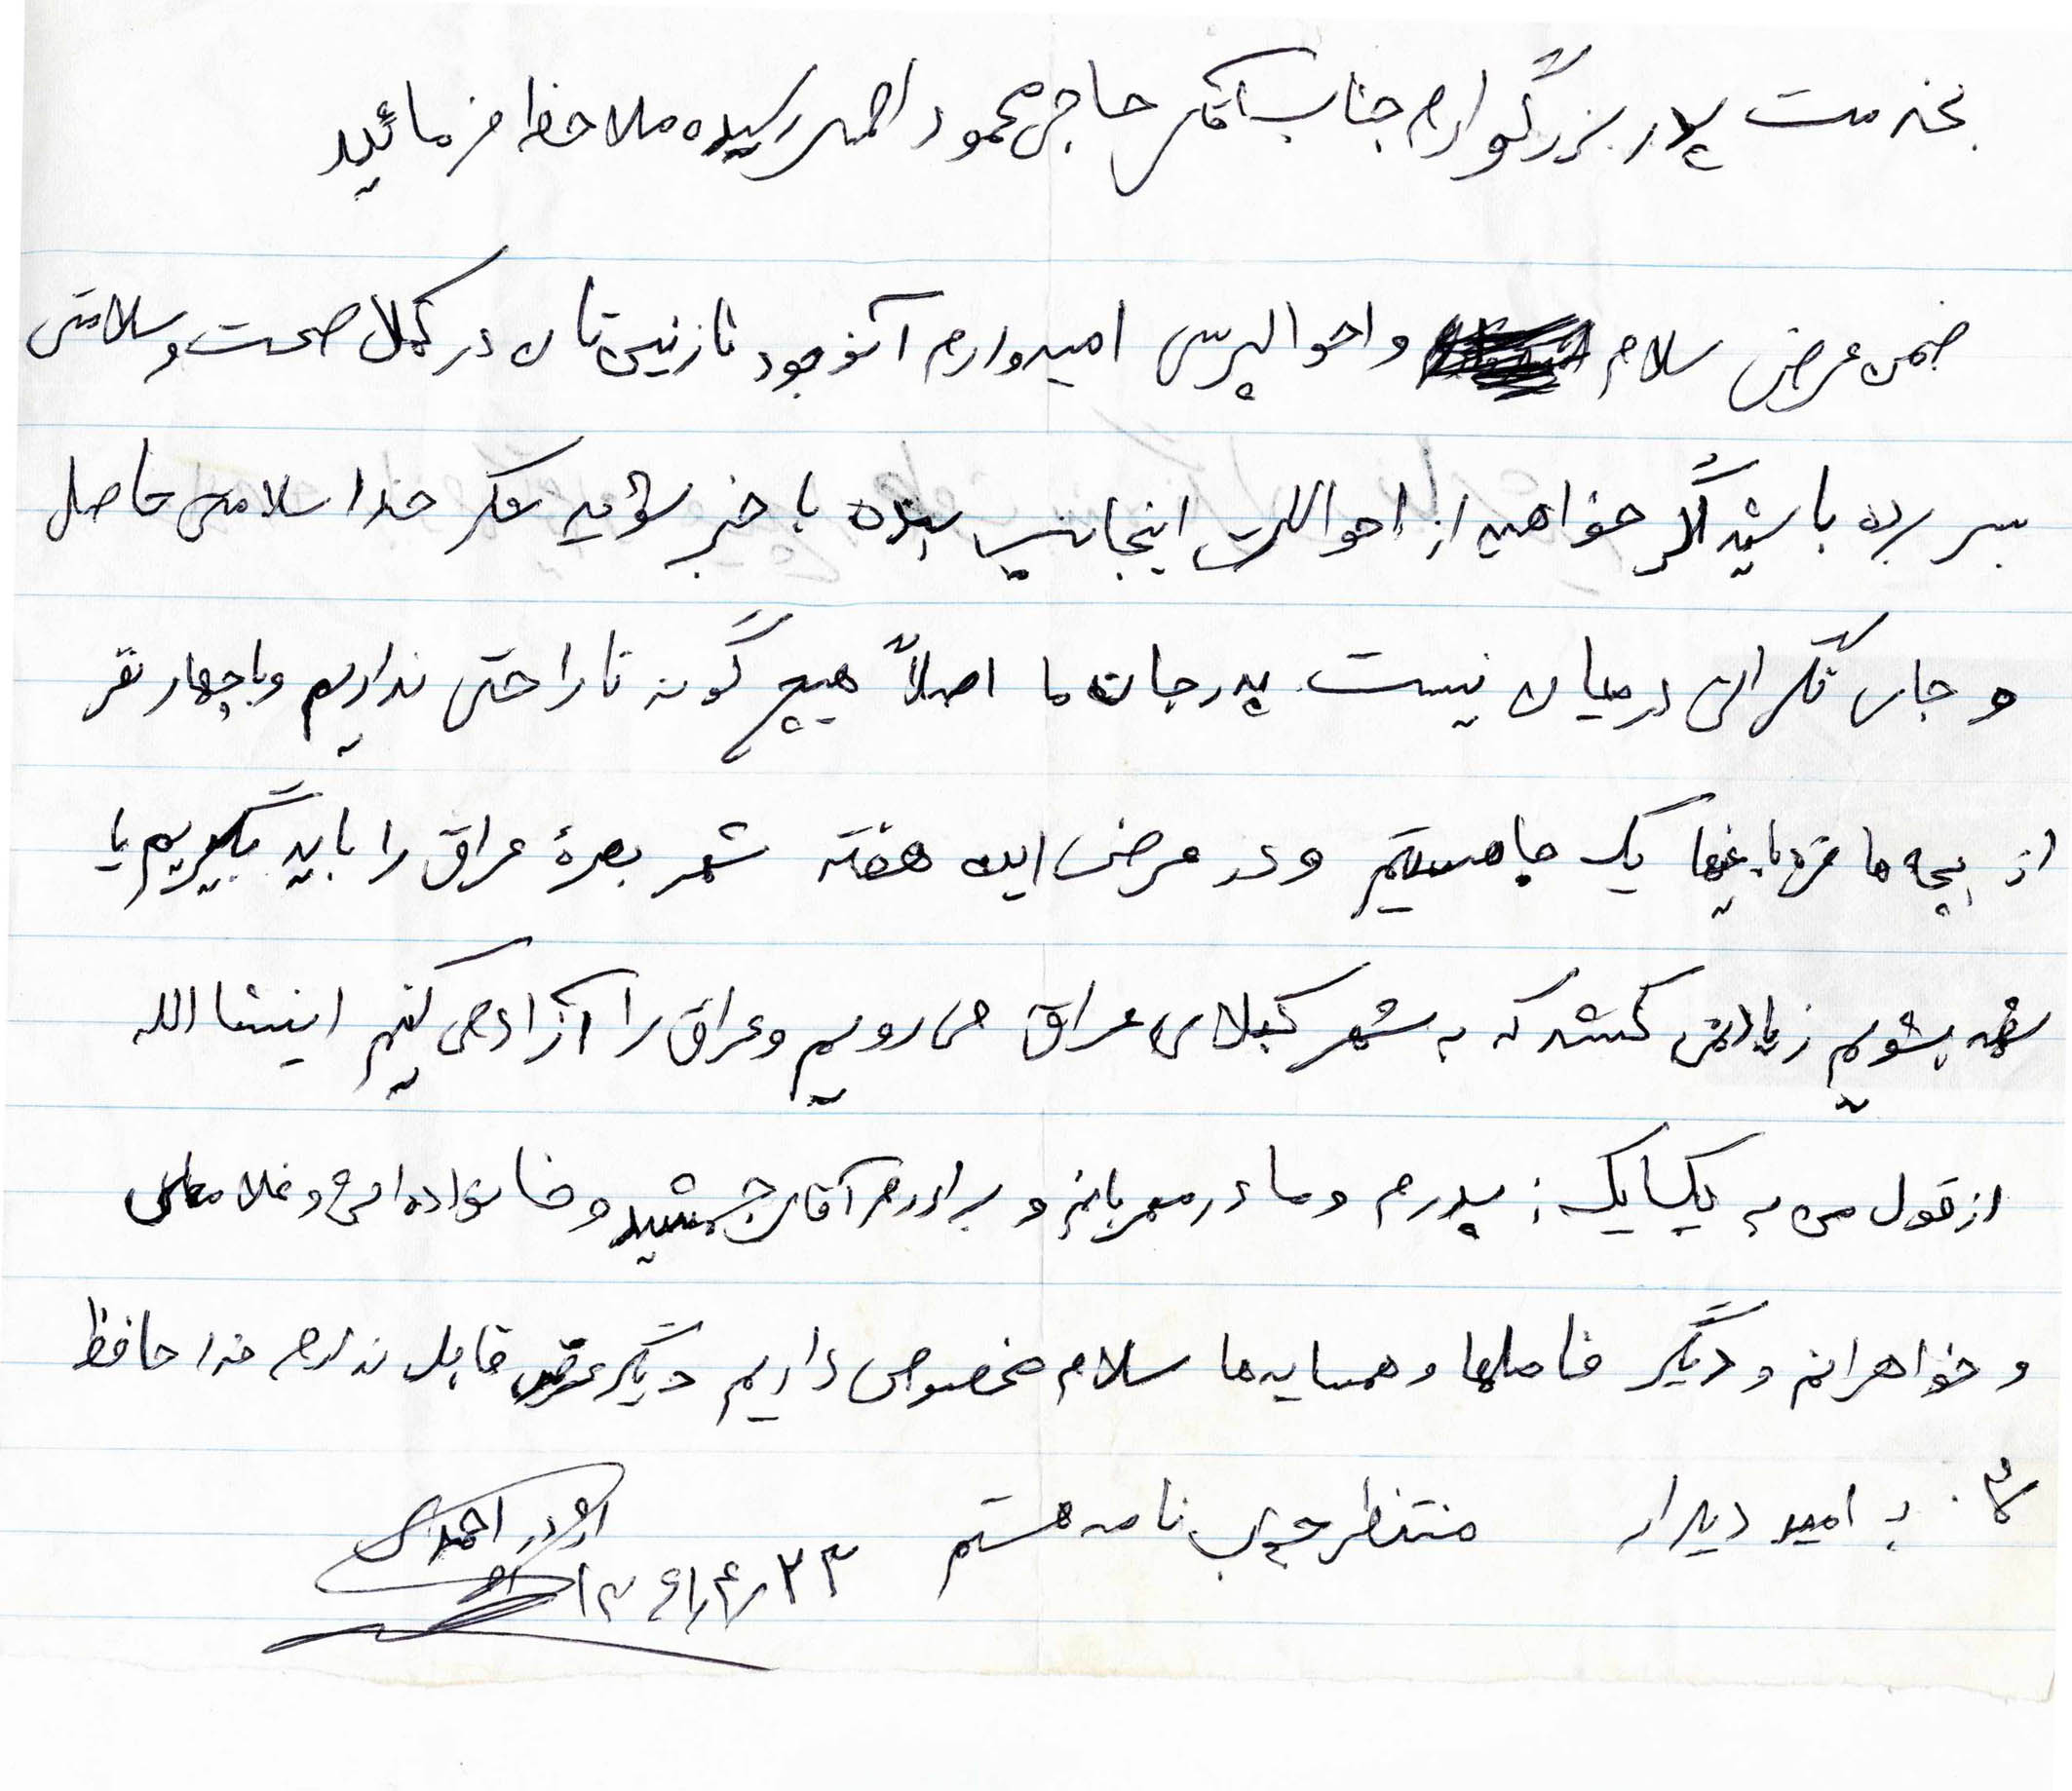 بخدمت پدر بزرگوارم جناب آقای حاجی محمود احمدی رسیده ملاحظه فرمائید
ضمن عرض سلام و احوالپرسی امیدوارم آنوجود نازنین تان در کمال صحت و سلامتی
بسر برده باشید اگر خواهید از احوالات اینجانب بنده با خبر شوید شکر خدا سلامتی حاصل
و جای نگرانی درمیان نیست پدر جان ما اصلاً هیچ گونه ناراحتی نداریم و با چهار نفر
از بچه ها یک جا هستیم و در عرض این هفته شهر بصرهٔ عراق را باید بگیریم یا
شهید بشویم زیاد نمی کشد که به شهر کربلای عراق می رویم و عراق را آزاد می کنیم اینشاالله
از قول من به یکایک : پدرم و مادر مهربانم و برادرم آقای جمشید و خانواده اش و غلامعلی
و خواهرانم و دیگر فامیلها و همسایه ها سلام مخصوص داریم دیگر عرض قابل ندارم خدا حافظ
شما . به امید دیدار منتظر جواب نامه هستم
احمدی
۱۳۶۱/۴/۲۳